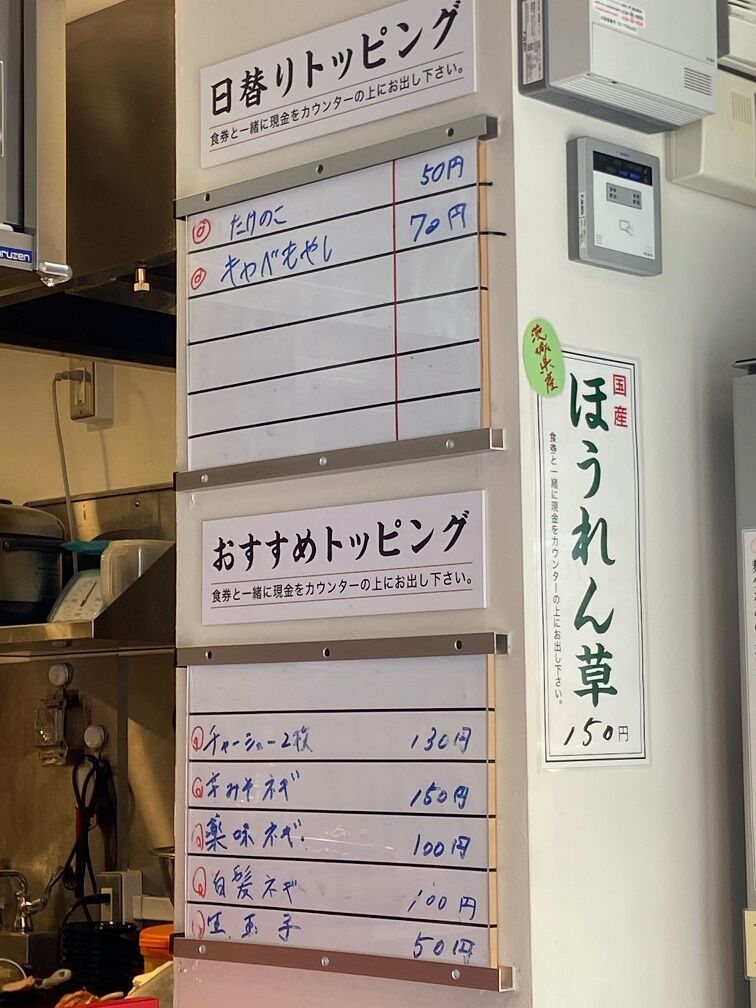 日替りトッピング
食券と一緒に現金をカウンターの上にお出し下さい。
たけのこ 50円
キャベもやし 70円
おすすめトッピング
食券と一緒に現金をカウンターの上にお出し下さい。
チャーシュー2枚 130円
辛みそネギ 150円
薬味ネギ 100円
白髪ネギ 100円
生玉子 50円
茨城県産
国産
ほうれん草
食券と一緒に現金をカウンターの上にお出し下さい。
150円